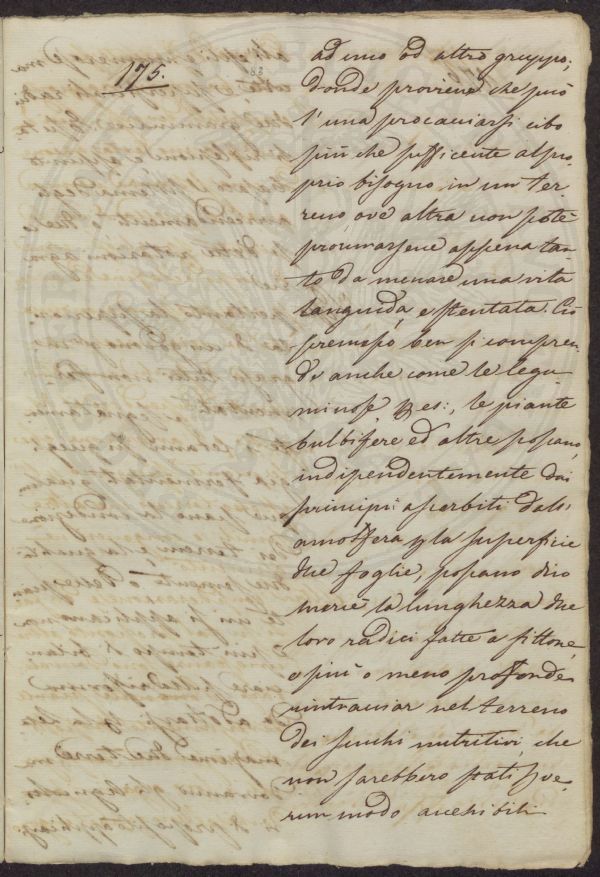 175.
83
ad uno od altro gruppo;
donde proviene che può
l'una procacciarsi cibo
più che sufficente al pro,
prio bisogno in un ter,
reno ove altra non potè
procurarsene appena tan,
to da menare una vita
languida, e stentata. Ciò
premesso ben si compren,
de anche come le legu,
minose, p. es:, le piante
bulbifere ed altre possano,
indipendentemente dai
principii assorbiti dall'
amosfera p la superficie
due foglie, possano dico
mercè la lunghezza due
loro radici fatte a fittone,
o più o meno profonde
rintracciar nel terreno
dei succhi nutritivi, che
non sarebbero stati p ve,
run modo accessibili